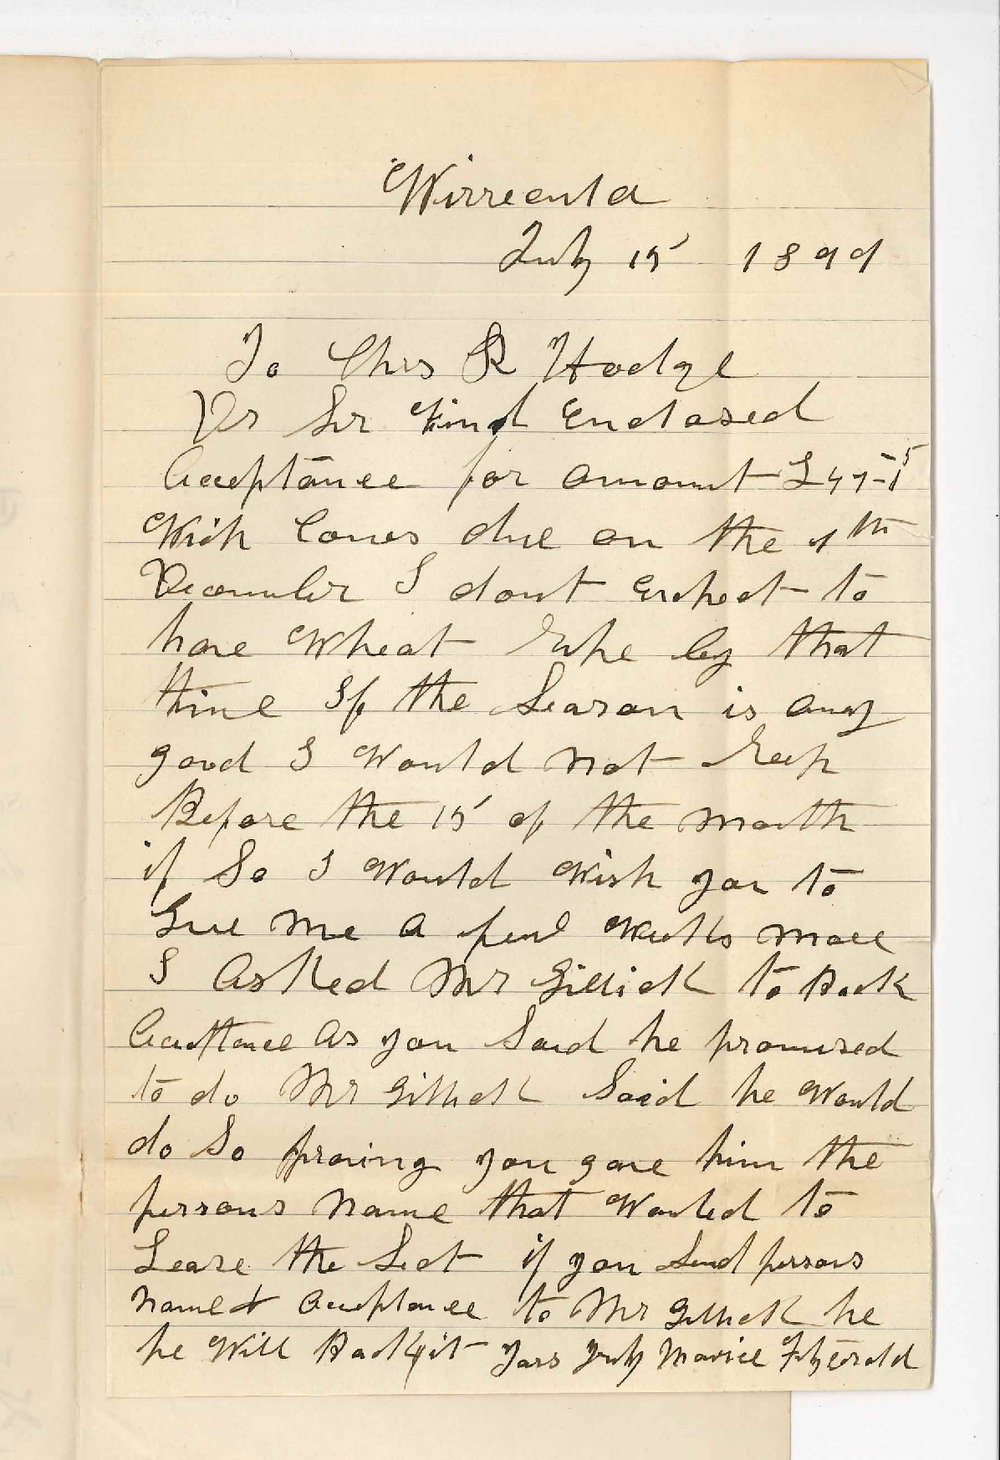 Wirreanda
July 15 1899
To Chrs R Hodge
Dr Sir Find Enclosed
Acceptance for amount £47-1
Wich Comes due on the 7th
December I dont Exshect to
have Wheat by that
time If the Season is any
good I Would not Reep
Before the 15 of the month
if So I Would Wish you to
Give me A few Weeks more
I Asked Mr Gillick to Back
Acceptance As you Said he promised
to do Mr Gillick Said he Would
do So proving you gave him the
persons Name that Wanted to
Leave the Sect if you Send persons
Name & Acceptance to Mr Gillick he
he Will Back it yours truly Maurice Fitzgerald